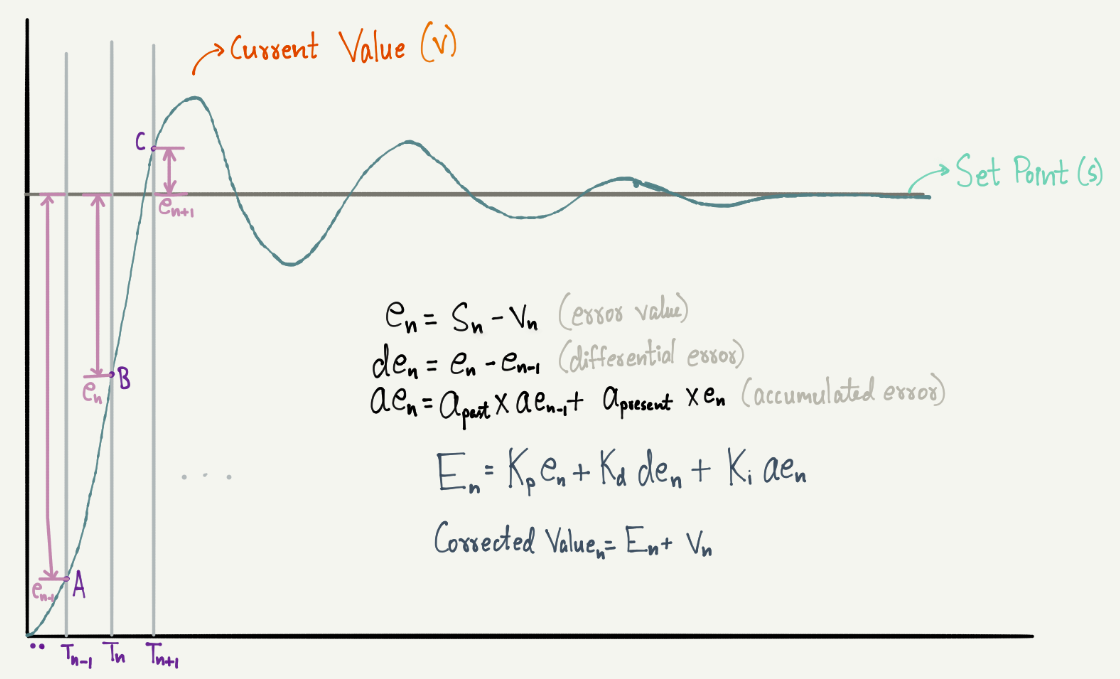 Current Value (v)
C
Set Point (s)
eₙ₊₁
eₙ = Sₙ - Vₙ (error value)
deₙ = eₙ - eₙ₋₁ (differential error)
B
eₙ
aeₙ = aₚₐₛₜ X aeₙ₋₁ + aₚᵣₑₛₑₙₜ X eₙ (accumulated error)
Eₙ = Kₚ eₙ + K_d deₙ + Kᵢ aeₙ
. . .
Corrected Valueₙ = Eₙ + Vₙ
A
eₙ₋₁
.. Tₙ₋₁ Tₙ Tₙ₊₁